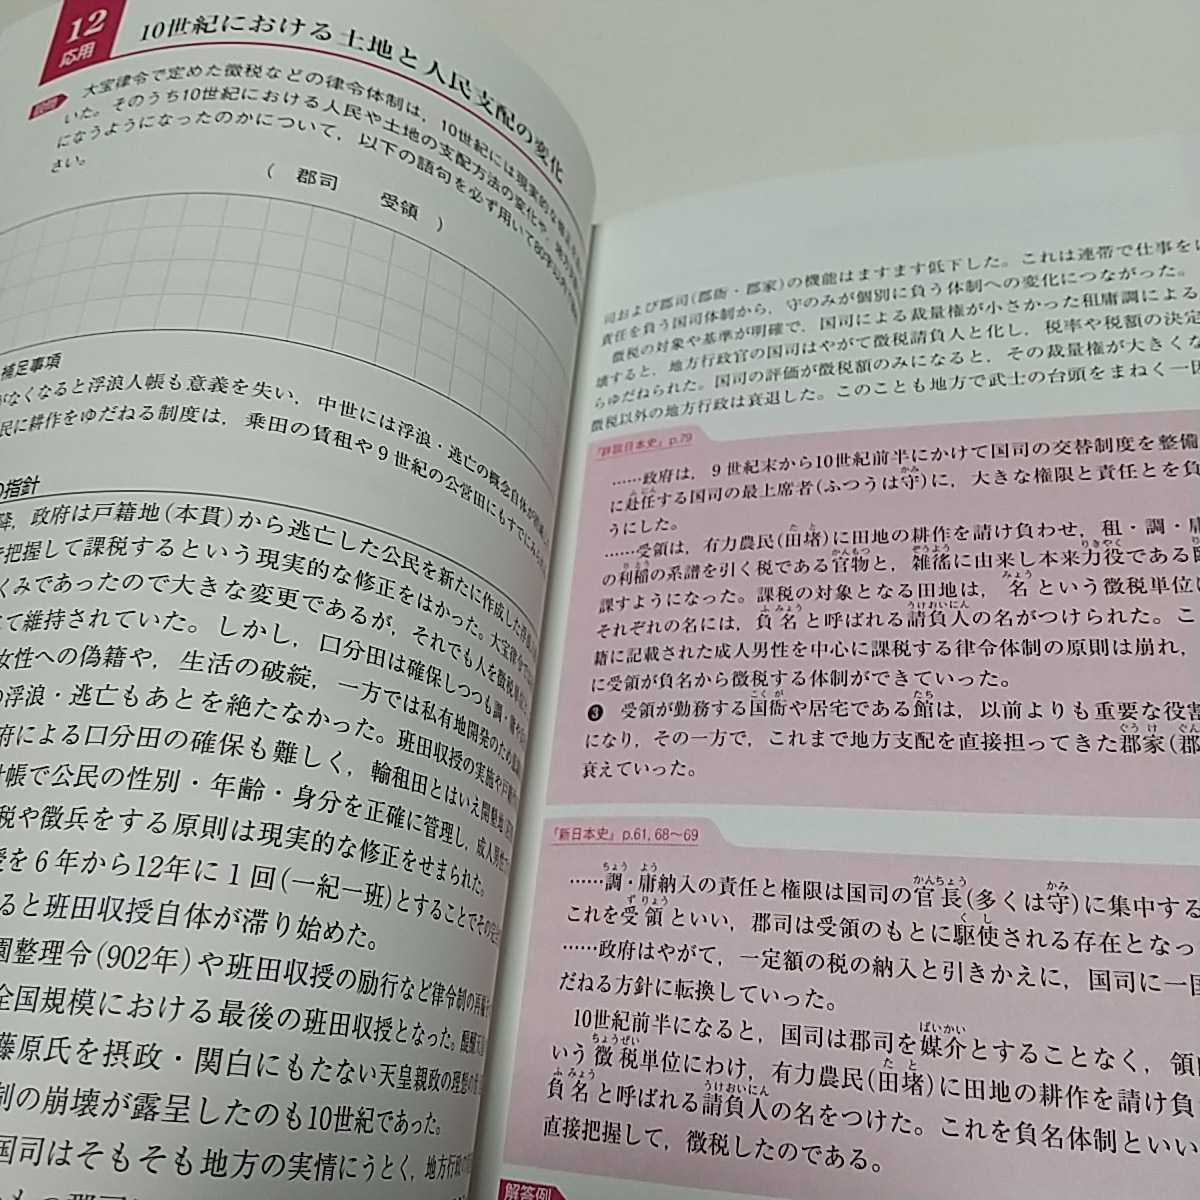 12
応用
10世紀における土地と人民支配の変化
設問
大宝律令で定めた徴税などの律令体制は，10世紀には現実的な修正を
いた。そのうち10世紀における人民や土地の支配方法の変化や，
になうようになったのかについて，以下の語句を必ず用いて80字以内で
さい。
（　郡司　　受領　）
補足事項
がなくなると浮浪人帳も意義を失い，中世には浮浪・逃亡の概念自体が
民に耕作をゆだねる制度は，乗田の賃租や9世紀の公営田にもすでに
の指針
降，政府は戸籍地(本貫)から逃亡した公民を新たに作成した浮浪
で把握して課税するという現実的な修正をはかった。大宝律令で
くみであったので大きな変更であるが，それでも人を徴税単位
て維持されていた。しかし，口分田は確保しつつも調・庸や
女性への偽籍や，生活の破綻，一方では私有地開発のため
の浮浪・逃亡もあとを絶たなかった。班田収授の実施や戸籍
府による口分田の確保も難しく，輸租田とはいえ開墾地
計帳で公民の性別・年齢・身分を正確に管理し，成人男性
税や徴兵をする原則は現実的な修正をせまられた。
授を6年から12年に1回(一紀一班)とすることでその
ると班田収授自体が滞り始めた。
園整理令(902年)や班田収授の励行など律令制の再建
全国規模における最後の班田収授となった。醍醐天皇
藤原氏を摂政・関白にもたない天皇親政の理想の
制の崩壊が露呈したのも10世紀であった。
国司はそもそも地方の実情にうとく，地方行政の
司および郡司(郡衙・郡家)の機能はますます低下した。これは連帯で仕事を
責任を負う国司体制から，守のみが個別に負う体制への変化につながった。
徴税の対象や基準が明確で，国司による裁量権が小さかった租庸調による
壊すると，地方行政官の国司はやがて徴税請負人と化し，税率や税額の決定
らゆだねられた。国司の評価が徴税額のみになると，その裁量権が大きくな
徴税以外の地方行政は衰退した。このことも地方で武士の台頭をまねく一因
『詳説日本史』p.79
……政府は，9世紀末から10世紀前半にかけて国司の交替制度を整備
に赴任する国司の最上席者(ふつうは守)に，大きな権限と責任とを負
うにした。
……受領は，有力農民(田堵)に田地の耕作を請け負わせ，租・調・庸
の利稲の系譜を引く税である官物と，雑徭に由来し本来力役である臨
課すようになった。課税の対象となる田地は，名という徴税単位に
それぞれの名には，負名と呼ばれる請負人の名がつけられた。こ
籍に記載された成人男性を中心に課税する律令体制の原則は崩れ，
に受領が負名から徴税する体制ができていった。
❸　受領が勤務する国衙や居宅である館は，以前よりも重要な役割
になり，その一方で，これまで地方支配を直接担ってきた郡家(郡
衰えていった。
『新日本史』p.61, 68〜69
……調・庸納入の責任と権限は国司の官長(多くは守)に集中する
これを受領といい，郡司は受領のもとに駆使される存在となっ
……政府はやがて，一定額の税の納入と引きかえに，国司に一国
だねる方針に転換していった。
10世紀前半になると，国司は郡司を媒介とすることなく，領
いう徴税単位にわけ，有力農民(田堵)に田地の耕作を請け負
負名と呼ばれる請負人の名をつけた。これを負名体制といい
直接把握して，徴税したのである。
解答例